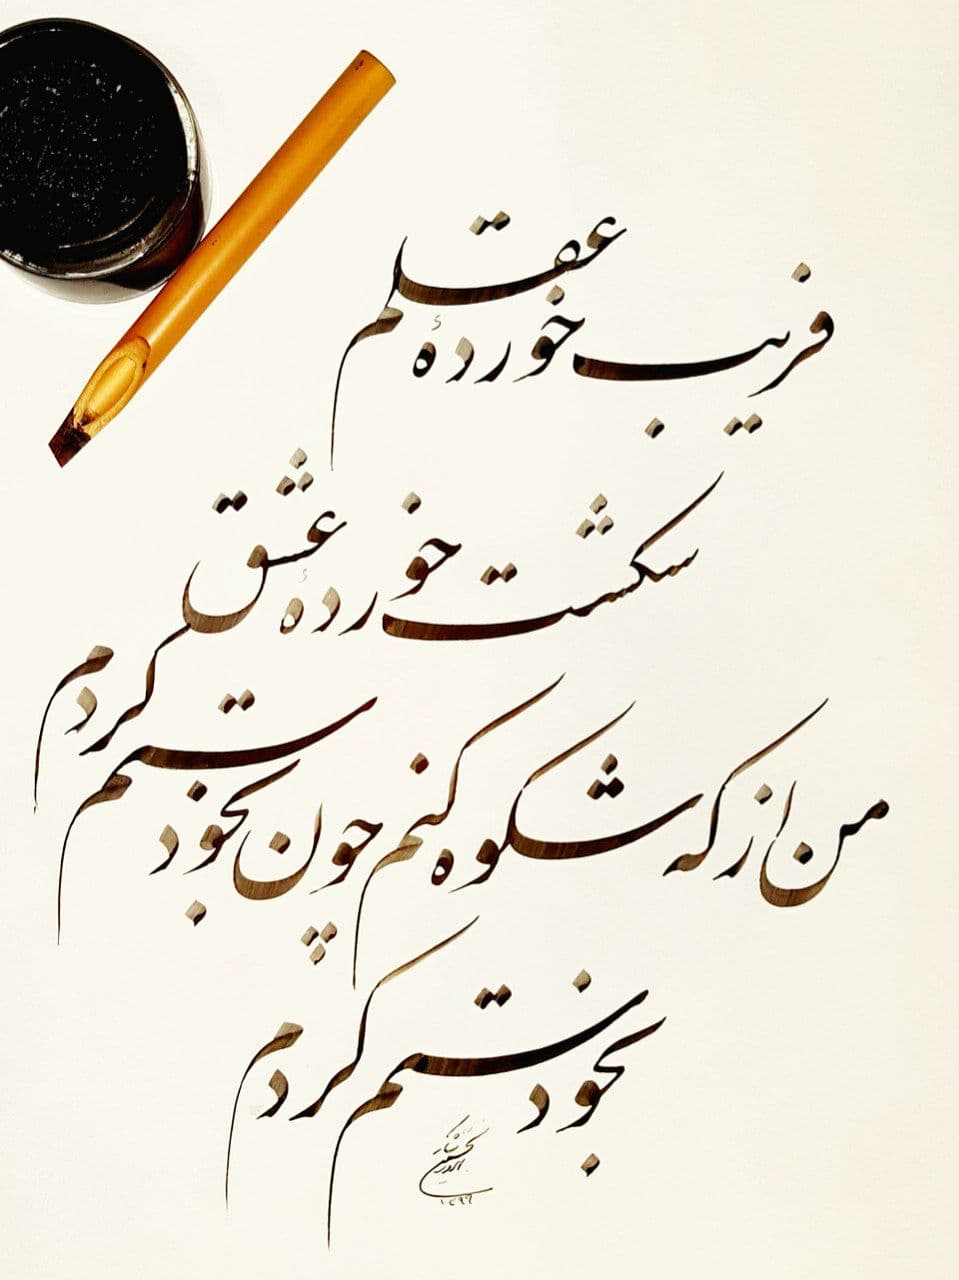 فریب خوردهٔ عقلم
شکست خوردهٔ عشق
من از که شکوه کنم چون بخود ستم کردم
بخود ستم کردم
۱۳۹۹